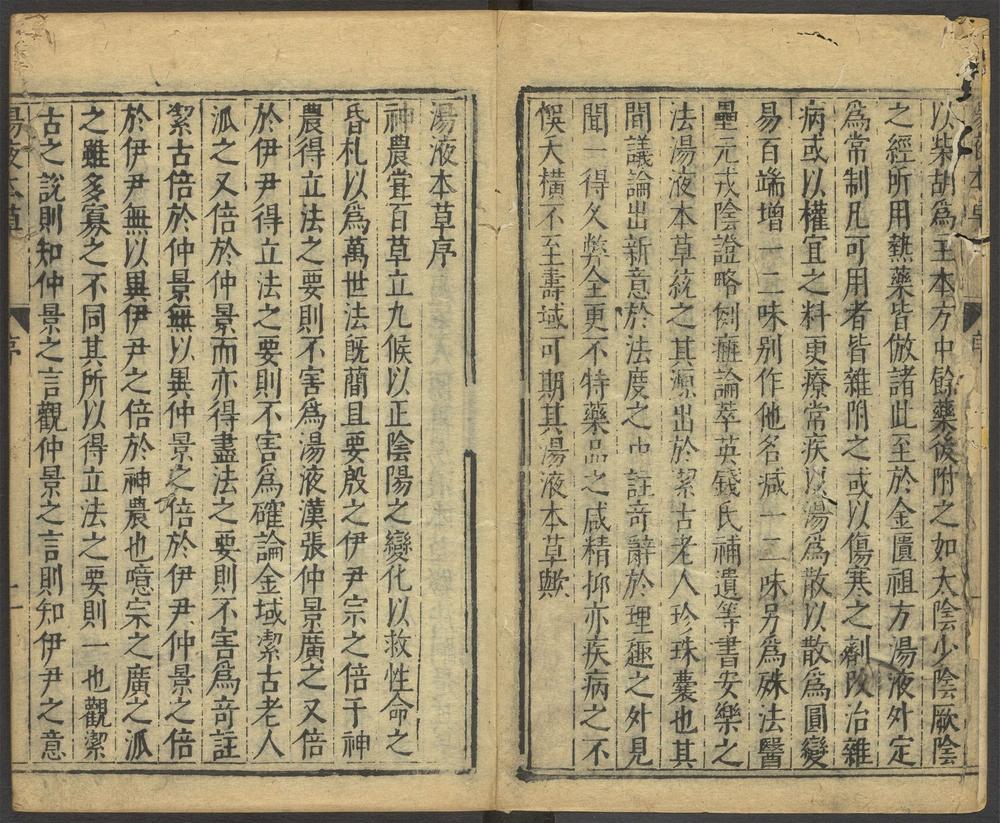 以柴胡爲主本方中餘藥後附之如太陰少陰厥陰
之經所用熱藥皆倣諸此至於金匱祖方湯液外定
爲常制凡可用者皆雜附之或以傷寒之劑改治雜
病或以權宜之料更療常疾以湯爲散以散爲圓變
易百端增一二味别作他名減一二味另爲殊法醫
壘元戎陰證略例癍論萃英錢氏補遺等書安樂之
法湯液本草統之其源出於潔古老人珍珠囊也其
間議論出新意於法度之中註竒辭於理趣之外見
聞一得久弊全更不特藥品之咸精抑亦疾病之不
悞夭橫不至壽域可期其湯液本草歟
湯液本草序
神農甞百草立九候以正陰陽之變化以救性命之
昏札以爲萬世法旣蕳且要殷之伊尹宗之倍于神
農得立法之要則不害爲湯液漢張仲景廣之又倍
於伊尹得立法之要則不害爲確論金域潔古老人
派之又倍於仲景而亦得盡法之要則不害爲竒註
潔古倍於仲景無以異仲景之倍於伊尹仲景之倍
於伊尹無以異伊尹之倍於神農也噫宗之廣之派
之雖多寡之不同其所以得立法之要則一也觀潔
古之說則知仲景之言觀仲景之言則知伊尹之意
湯液本草
序
一